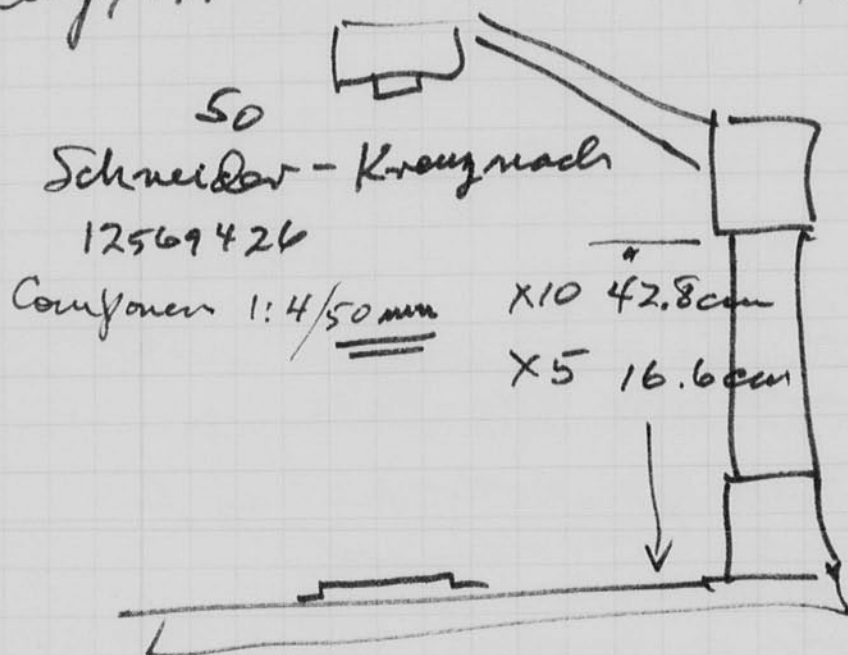 50
Schneider - Kreuznach
12569426
Componon 1:4/50mm
X10 42.8cm
X5 16.6cm